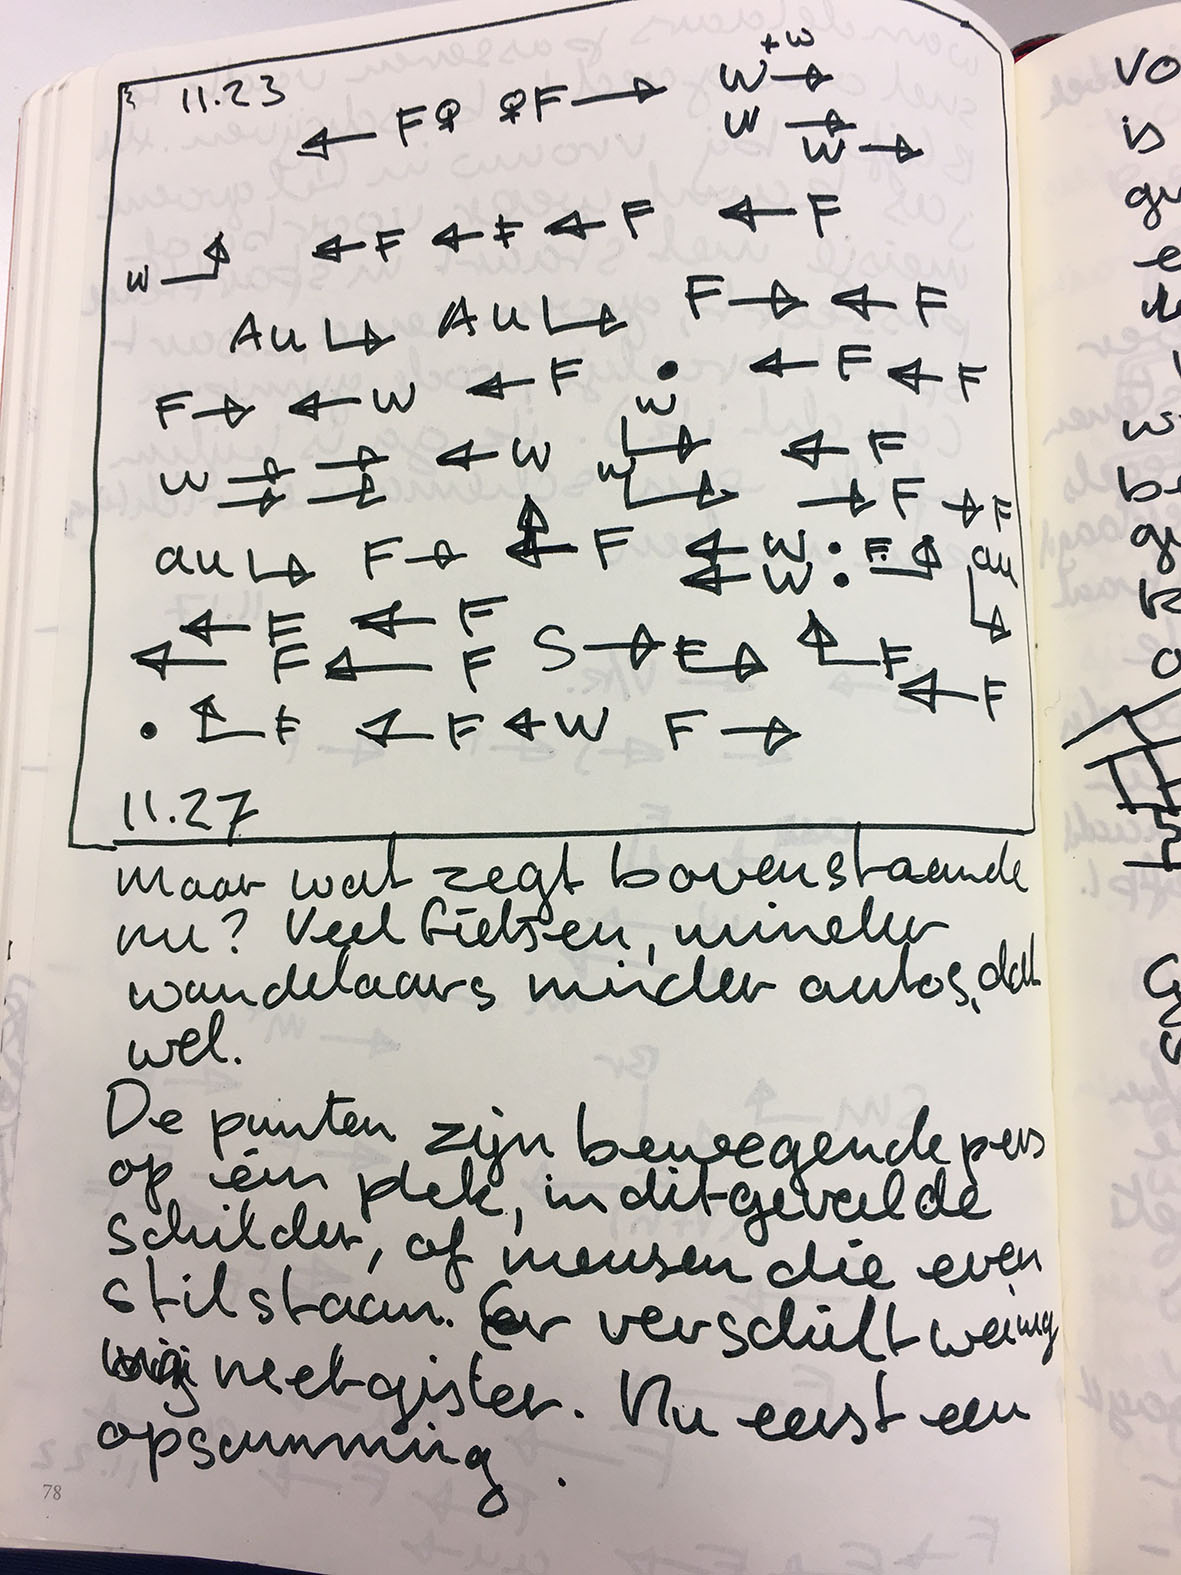 11.23
← F♀ ♀F → W → +W
W →
W →
W ↑ ← F ← F ← F ← F
Au → Au → F → ← F
F → ← W ← F • ← F ← F
W → → ← W W → ← F
→ → W → → F → F
au → F → ← ↑ F ← W • F ↑ au →
← W •
← F ← F S → F → ↑ F
← F ← F ← F
• ↑ F ← F ← W F →
11.27
maar wat zegt bovenstaande
nu? Veel fietsen, minder
wandelaars minder autos, dat
wel.
De punten zijn bewegende pers
op één plek, in dit geval de
schilder, of mensen die even
stilstaan. Er verschilt weinig
met gister. Nu eerst een
opsomming.
78
vo
is